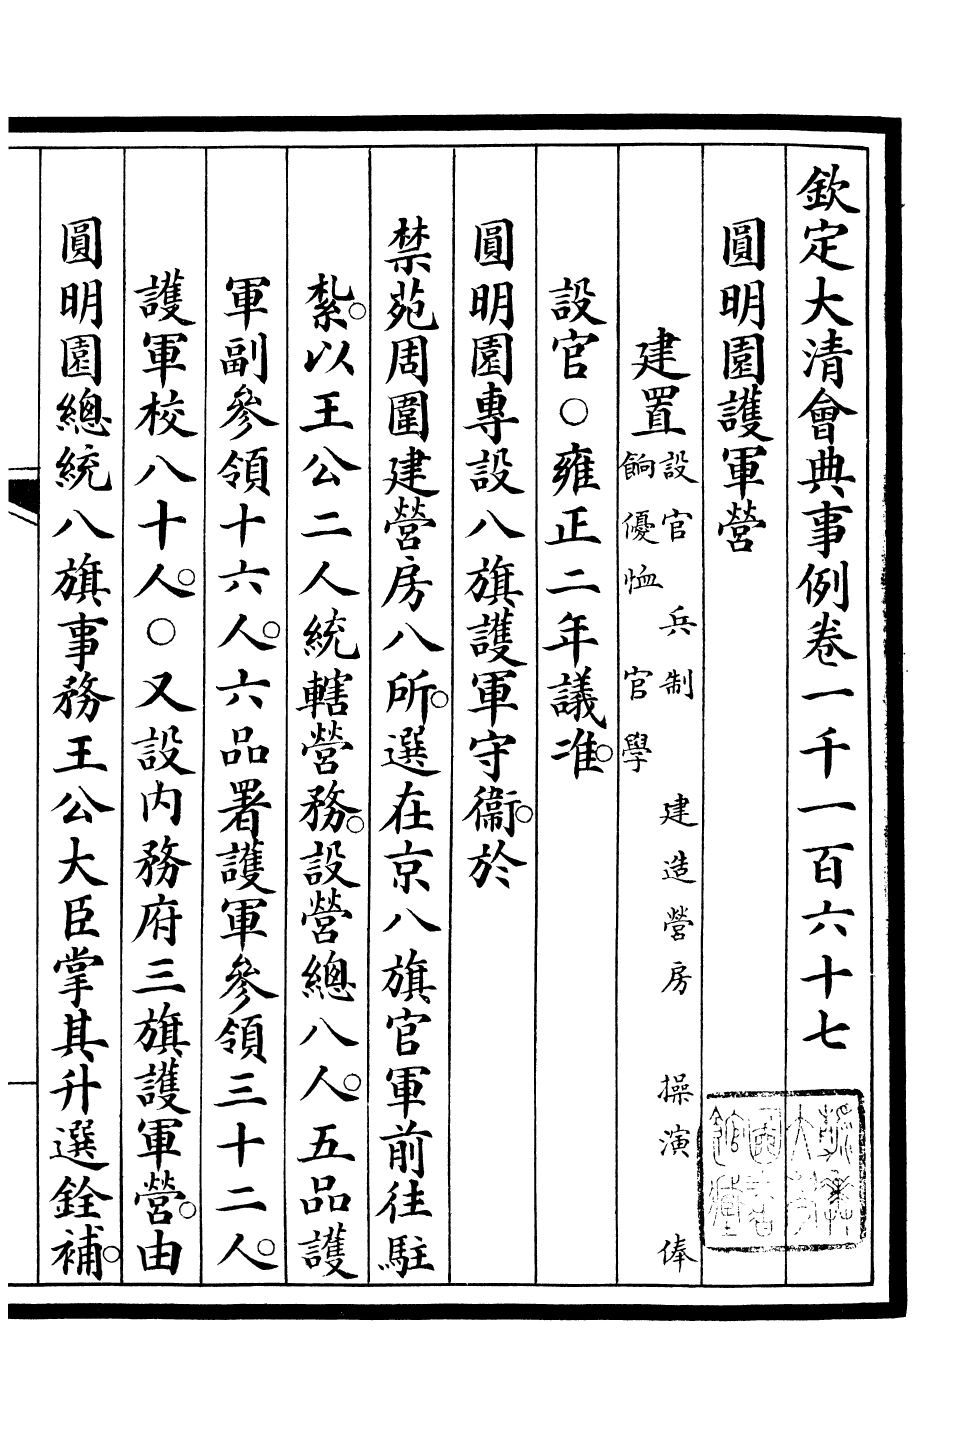 欽定大清會典事例卷一千一百六十七
圓明園護軍營
建置設官 兵制 建造營房 操演 俸
餉優恤 官學
設官○雍正二年議准。
圓明園專設八旗護軍守衞。於
禁苑周圍建營房八所。選在京八旗官軍前往駐
紮。以王公二人統轄營務。設營總八人。五品護
軍副參領十六人。六品署護軍參領三十二人。
護軍校八十人。○又設內務府三旗護軍營。由
圓明園總統八旗事務王公大臣掌其升選銓補。